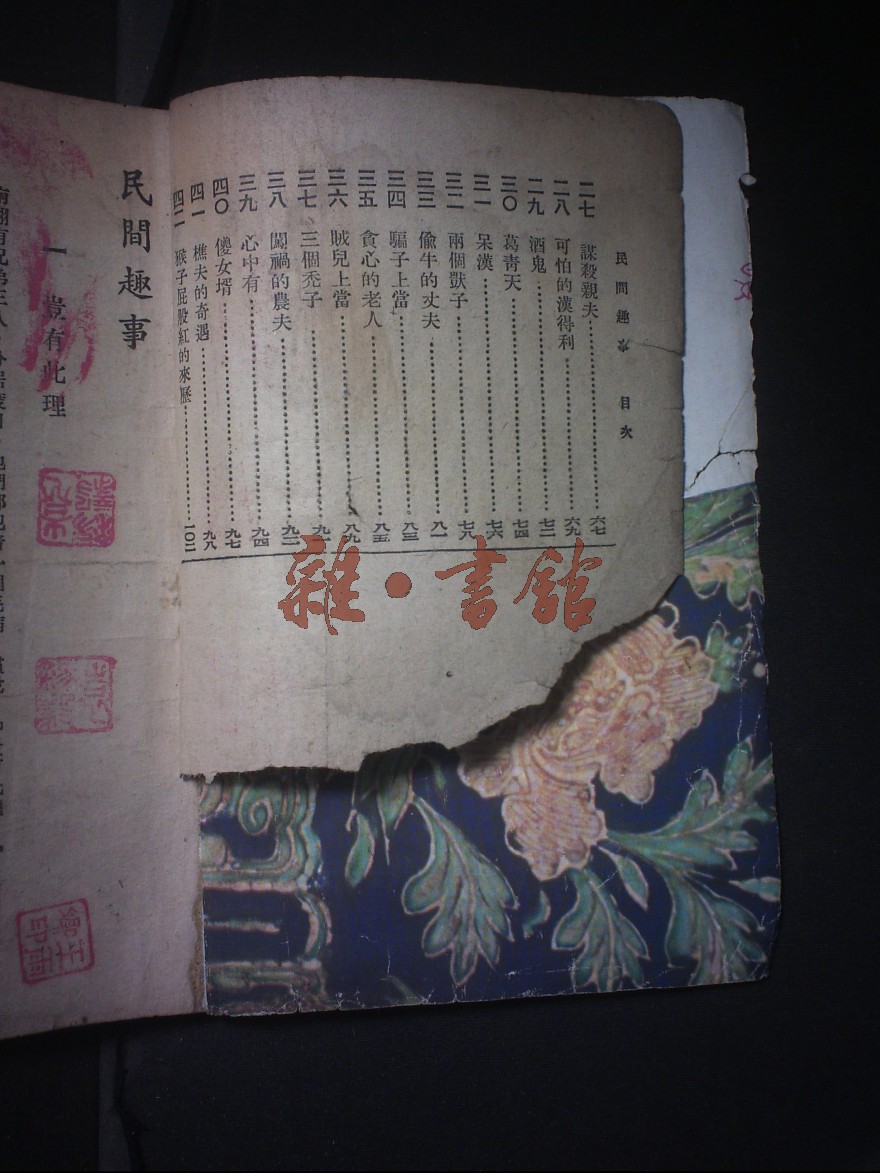 民間趣事 目次
二七 謀殺親夫 六七
二八 可怕的漢得利 六九
二九 酒鬼 七二
三〇 葛青天 七四
三一 呆漢 七六
三二 兩個獃子 七八
三三 偷牛的丈夫 八一
三四 騙子上當 八三
三五 貪心的老人 八五
三六 賊兒上當 八九
三七 三個禿子 九一
三八 闖禍的農夫 九二
三九 心中有 九四
四〇 傻女壻 九七
四一 樵夫的奇遇 九八
四二 猴子屁股紅的來歷 一〇二
民間趣事
一 豈有此理
雜·書舘